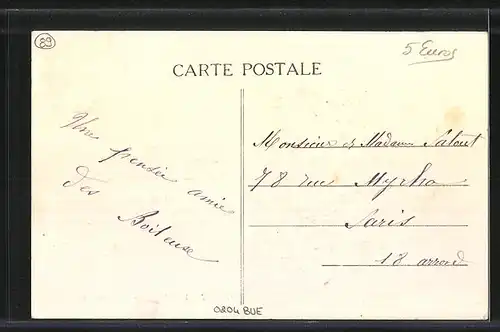 89
5 Euros
CARTE POSTALE
Une
pensée amie
des Boiteuse
Monsieur et Madame Patout
78 rue Myrha
Paris
18 arrond
0204 BUE